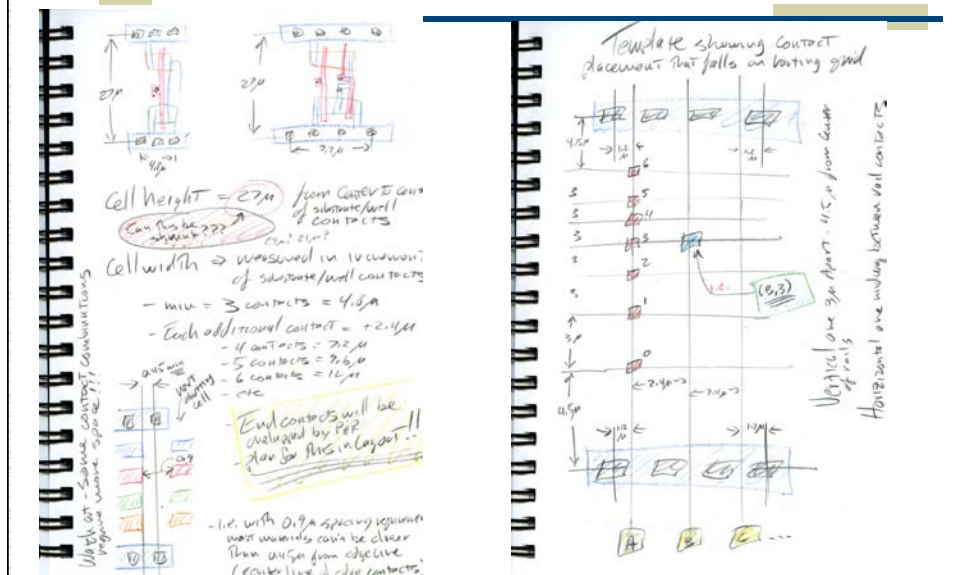 27µ
27µ
4.8µ
7.2µ
Cell height = 27µ from Center to Cen
of substrate/well
contacts
Can this be
shrunk???
24µ? 21µ?
Cell width ⇒ measured in incremen
of substrate/well contacts
- min = 3 contacts = 4.8µ
- Each additional contact = +2.4µ
- 4 contacts = 7.2µ
- 5 contacts = 9.6µ
- 6 contacts = 12µ
- etc
Watch out - Some contact combinations
require more space!!!
0.45 min
next
abutting
cell
0.9
End contacts will be
overlapped by P&R
plan for this in Layout!!
- i.e. with 0.9µ spacing requireme
most materials can't be closer
Than 0.45µ from edge line
(center line of edge contacts)
Template showing contact
placement that falls on routing grid
4.5µ
1.2
µ
1.2
µ
6
3
5
3
4
3
3
3
2
3
1
3µ
0
i.e.
(B,3)
2.4µ
2.4µ
4.5µ
1.2
µ
1.2µ
A
B
C
...
Vertical are 3µ Apart - 4.5µ from Center
of rails
Horizontal are midway between rail contacts